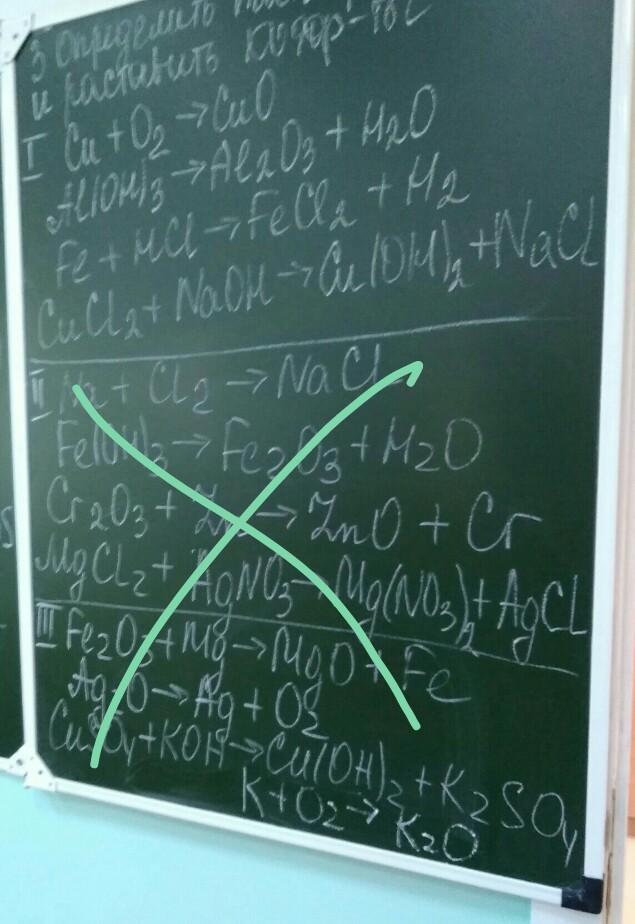 3 Определить
и раставить коэф-тос
I Cu + O2 → CuO
Al(OH)3 → Al2O3 + H2O
Fe + HCl → FeCl2 + H2
CuCl2 + NaOH → Cu(OH)2 + NaCl
II Na + Cl2 → NaCl
Fe(OH)3 → Fe2O3 + H2O
Cr2O3 + Zn → ZnO + Cr
MgCl2 + AgNO3 → Mg(NO3)2 + AgCl
III Fe2O3 + Mg → MgO + Fe
Ag2O → Ag + O2
CuSO4 + KOH → Cu(OH)2 + K2SO4
K + O2 → K2O